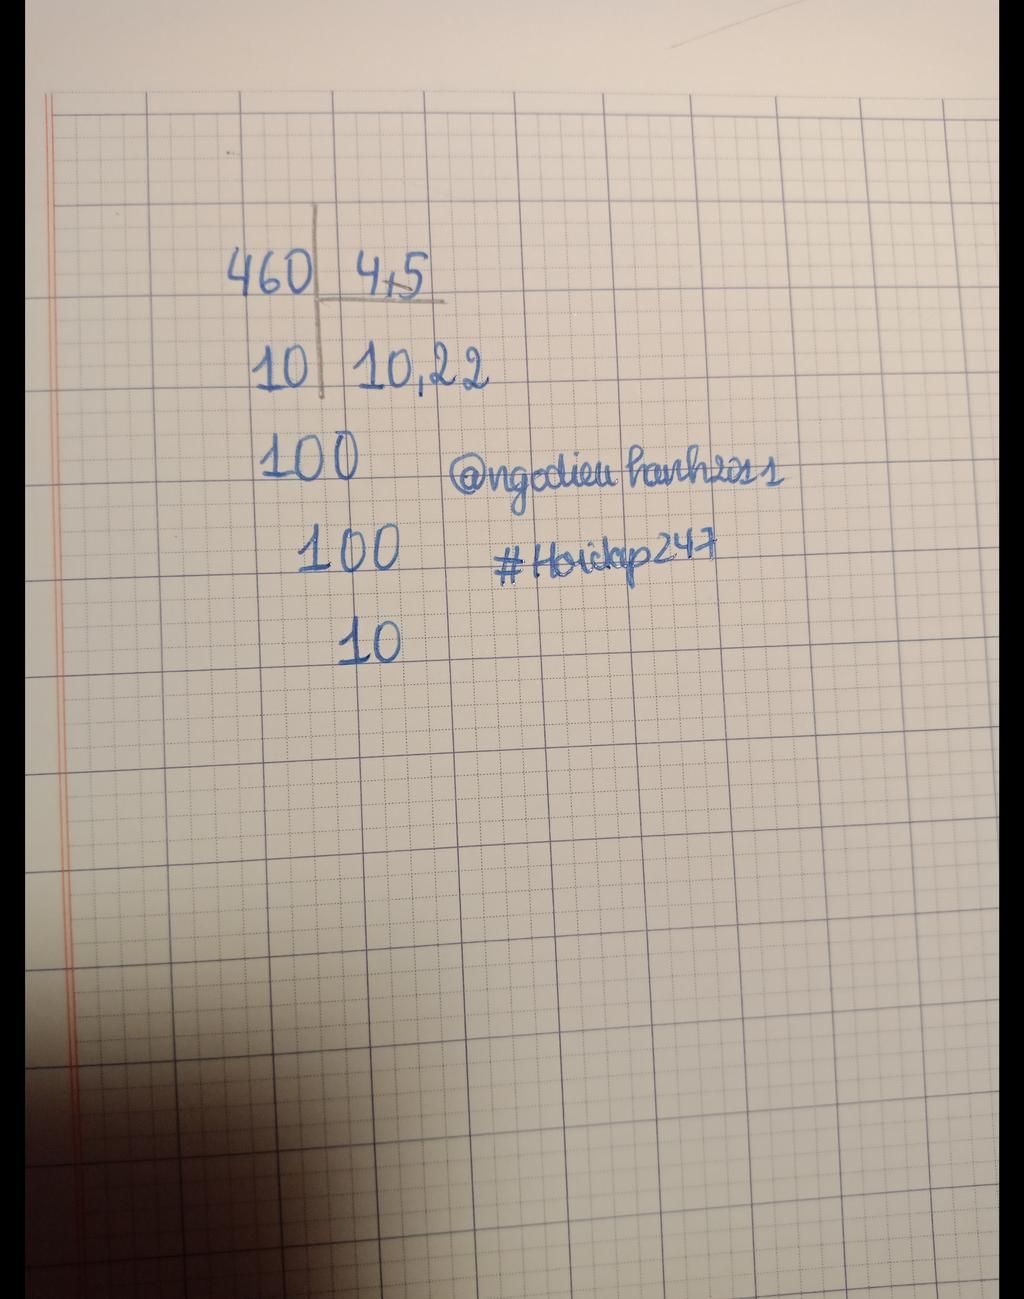 460 4,5
10 10,22
100
@ngodieuhanh2011
100
#Hoidap247
10